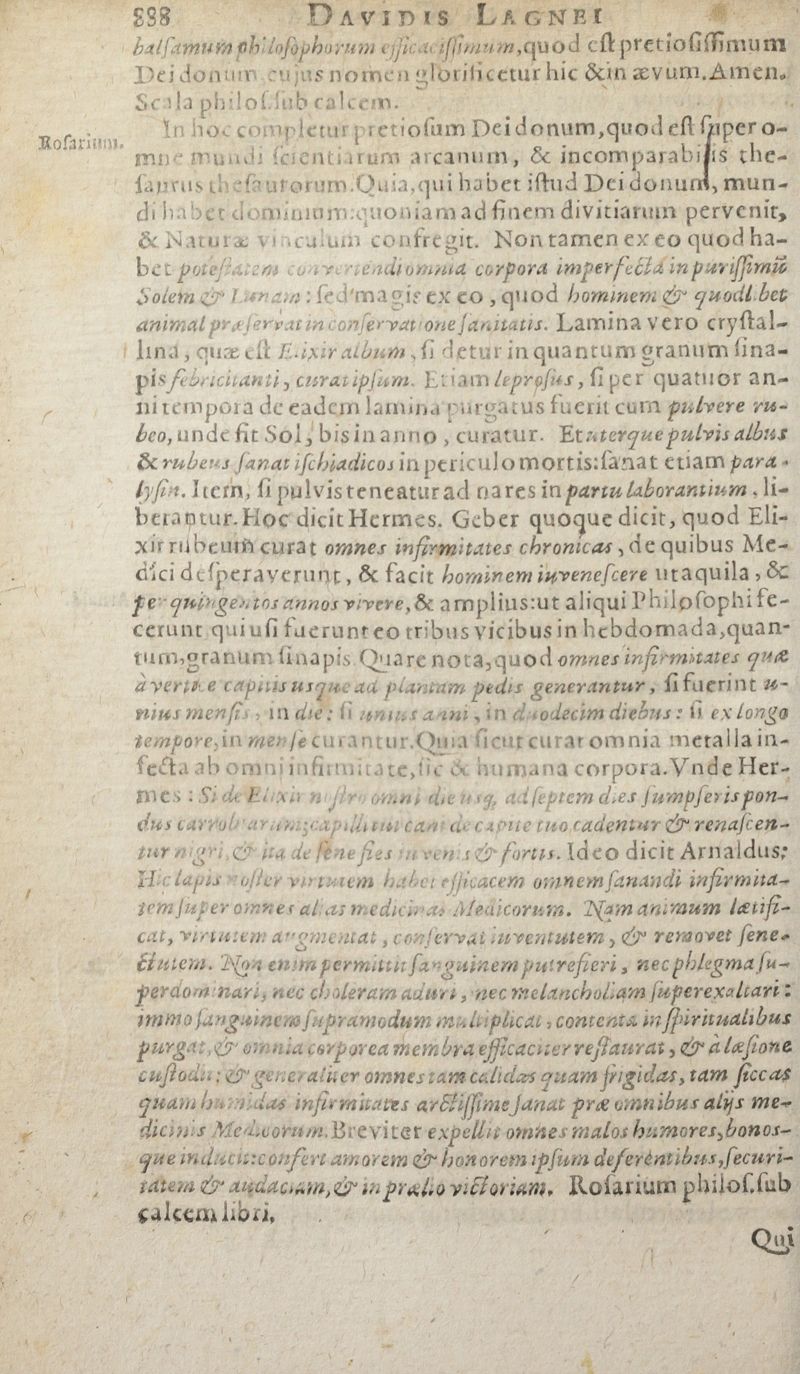 888 DAVIDIS LAGNEI
balſamum philoſophorum efficaciſſimum, quod eſt pretioſiſſimum
Dei donum cujus nomen glorificetur hic & in ævum. Amen.
Scala philoſ. ſub calcem.
In hoc completur pretioſum Dei donum, quod eſt ſuper o-
Roſarium.
mne mundi ſcientiarum arcanum, & incomparabilis the-
ſaurus theſaurorum. Quia, qui habet iſtud Dei donum, mun-
di habet dominium: quoniam ad finem divitiarum pervenit,
& Naturæ vinculum confregit. Non tamen ex eo quod ha-
bet poteſtatem convertendi omnia corpora imperfecta in puriſſimũ
Solem & Lunam: ſed magis ex eo, quod hominem & quodlibet
animal præſervat in conſervatione ſanitatis. Lamina vero cryſtal-
lina, quæ eſt Elixir album, ſi detur in quantum granum ſina-
pis febricitanti, curat ipſum. Etiam leproſus, ſi per quatuor an-
ni tempora de eadem lamina purgatus fuerit cum pulvere ru-
beo, unde fit Sol, bis in anno, curatur. Et uterque pulvis albus
& rubeus ſanat iſchiadicos in periculo mortis: ſanat etiam para-
lyſin. Item, ſi pulvis teneatur ad nares in partu laborantium, li-
berantur. Hoc dicit Hermes. Geber quoque dicit, quod Eli-
xir rubeum curat omnes infirmitates chronicas, de quibus Me-
dici deſperaverunt, & facit hominem iuveneſcere ut aquila, &
per quingentos annos vivere, & amplius: ut aliqui Philoſophi fe-
cerunt qui uſi fuerunt eo tribus vicibus in hebdomada, quan-
tum, granum ſinapis. Quare nota, quod omnes infirmitates quæ
à vertice capitis usque ad plantam pedis generantur, ſi fuerint u-
nius menſis, in die: ſi unius anni, in duodecim diebus: ſi ex longo
tempore, in menſe curantur. Quia ſicut curat omnia metalla in-
fecta ab omni infirmitate, ſic & humana corpora. Vnde Her-
mes: Si de Elixir noſtro omni die usq; ad ſeptem dies ſumpſeris pon-
dus carrobarum; capilli tui cani de capite tuo cadentur & renaſcen-
tur nigri, & ita de ſene fies iuvenis & fortis. Ideo dicit Arnaldus:
Hic lapis noſter virtutem habet efficacem omnem ſanandi infirmita-
tem ſuper omnes alias medicinas Medicorum. Nam animum lætifi-
cat, virtutem augmentat, conſervat iuventutem, & removet ſene-
ctutem. Non enim permittit ſanguinem putrefieri, nec phlegma ſu-
perdominari, nec choleram aduri, nec melancholiam ſuperexaltari:
immo ſanguinem ſupramodum multiplicat, contenta in ſpiritualibus
purgat, & omnia corporea membra efficaciter reſtaurat, & à læſione
cuſtodit: & generaliter omnes tam calidas quam frigidas, tam ſiccas
quam humidas infirmitates arctiſſime ſanat præ omnibus alijs me-
dicinis Medicorum. Breviter expellit omnes malos humores, bonos-
que inducit: confert amorem & honorem ipſum deferentibus, ſecuri-
tatem & audaciam, & in prælio victoriam. Roſarium philoſ. ſub
calcem libri.
Qui